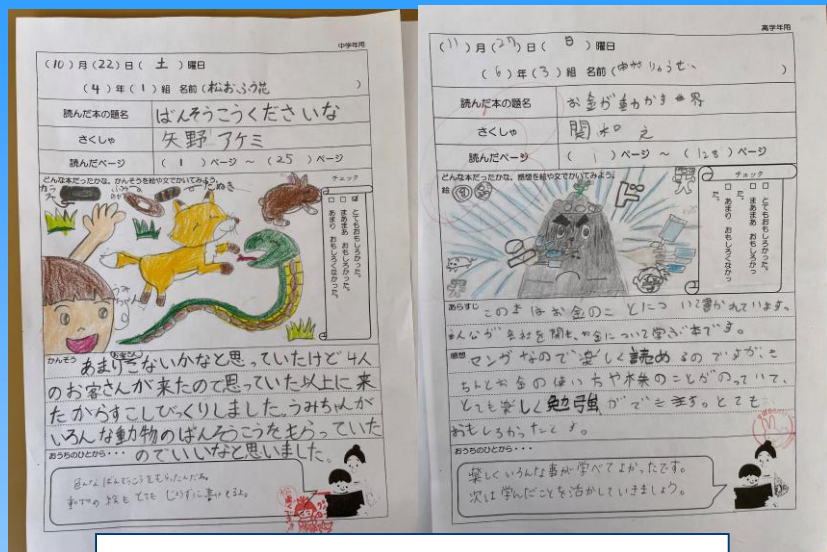 中学年用
(10)月(22)日( 土 )曜日
(4)年(1)組 名前(松おふう花 )
読んだ本の題名 ばんそうこうくださいな
さくしゃ 矢野 アケミ
読んだページ ( 1 )ページ ~ ( 25 )ページ
どんな本だったかな。かんそうを絵や文でかいてみよう。
チェック
□ とてもおもしろかった。
□ まあまあ おもしろかった。
□ あまり おもしろくなかった。
たぬき
かんそう あまりこないかなと思っていたけど4人
のお客さんが来たので思っていた以上に来
たからすこしびっくりしました。うみちゃんが
いろんな動物のばんそうこうをもらっていた
のでいいなと思いました。
おうちのひとから・・・
動物の絵もとてもじょうずに書けてるよ。
高学年用
(11)月(27)日( 日 )曜日
(6)年(3)組 名前( )
読んだ本の題名 お金が動かす世界
さくしゃ
読んだページ ( 1 )ページ ~ ( 128 )ページ
どんな本だったかな。感想を絵や文でかいてみよう。
絵
チェック
□ とてもおもしろかった。
□ まあまあ おもしろかった。
□ あまり おもしろくなかった。
ド
あらすじ この本はお金のことについて書かれています。
主人公が会社を開き、お金について学ぶ本です。
感想 マンガなので楽しく読めるのですが、き
ちんとお金の使い方や株のことがのっていて、
とても楽しく勉強ができます。とても
おもしろかったです。
おうちのひとから・・・
楽しくいろんな事が学べてよかったです。
次は学んだことを活かしていきましょう。